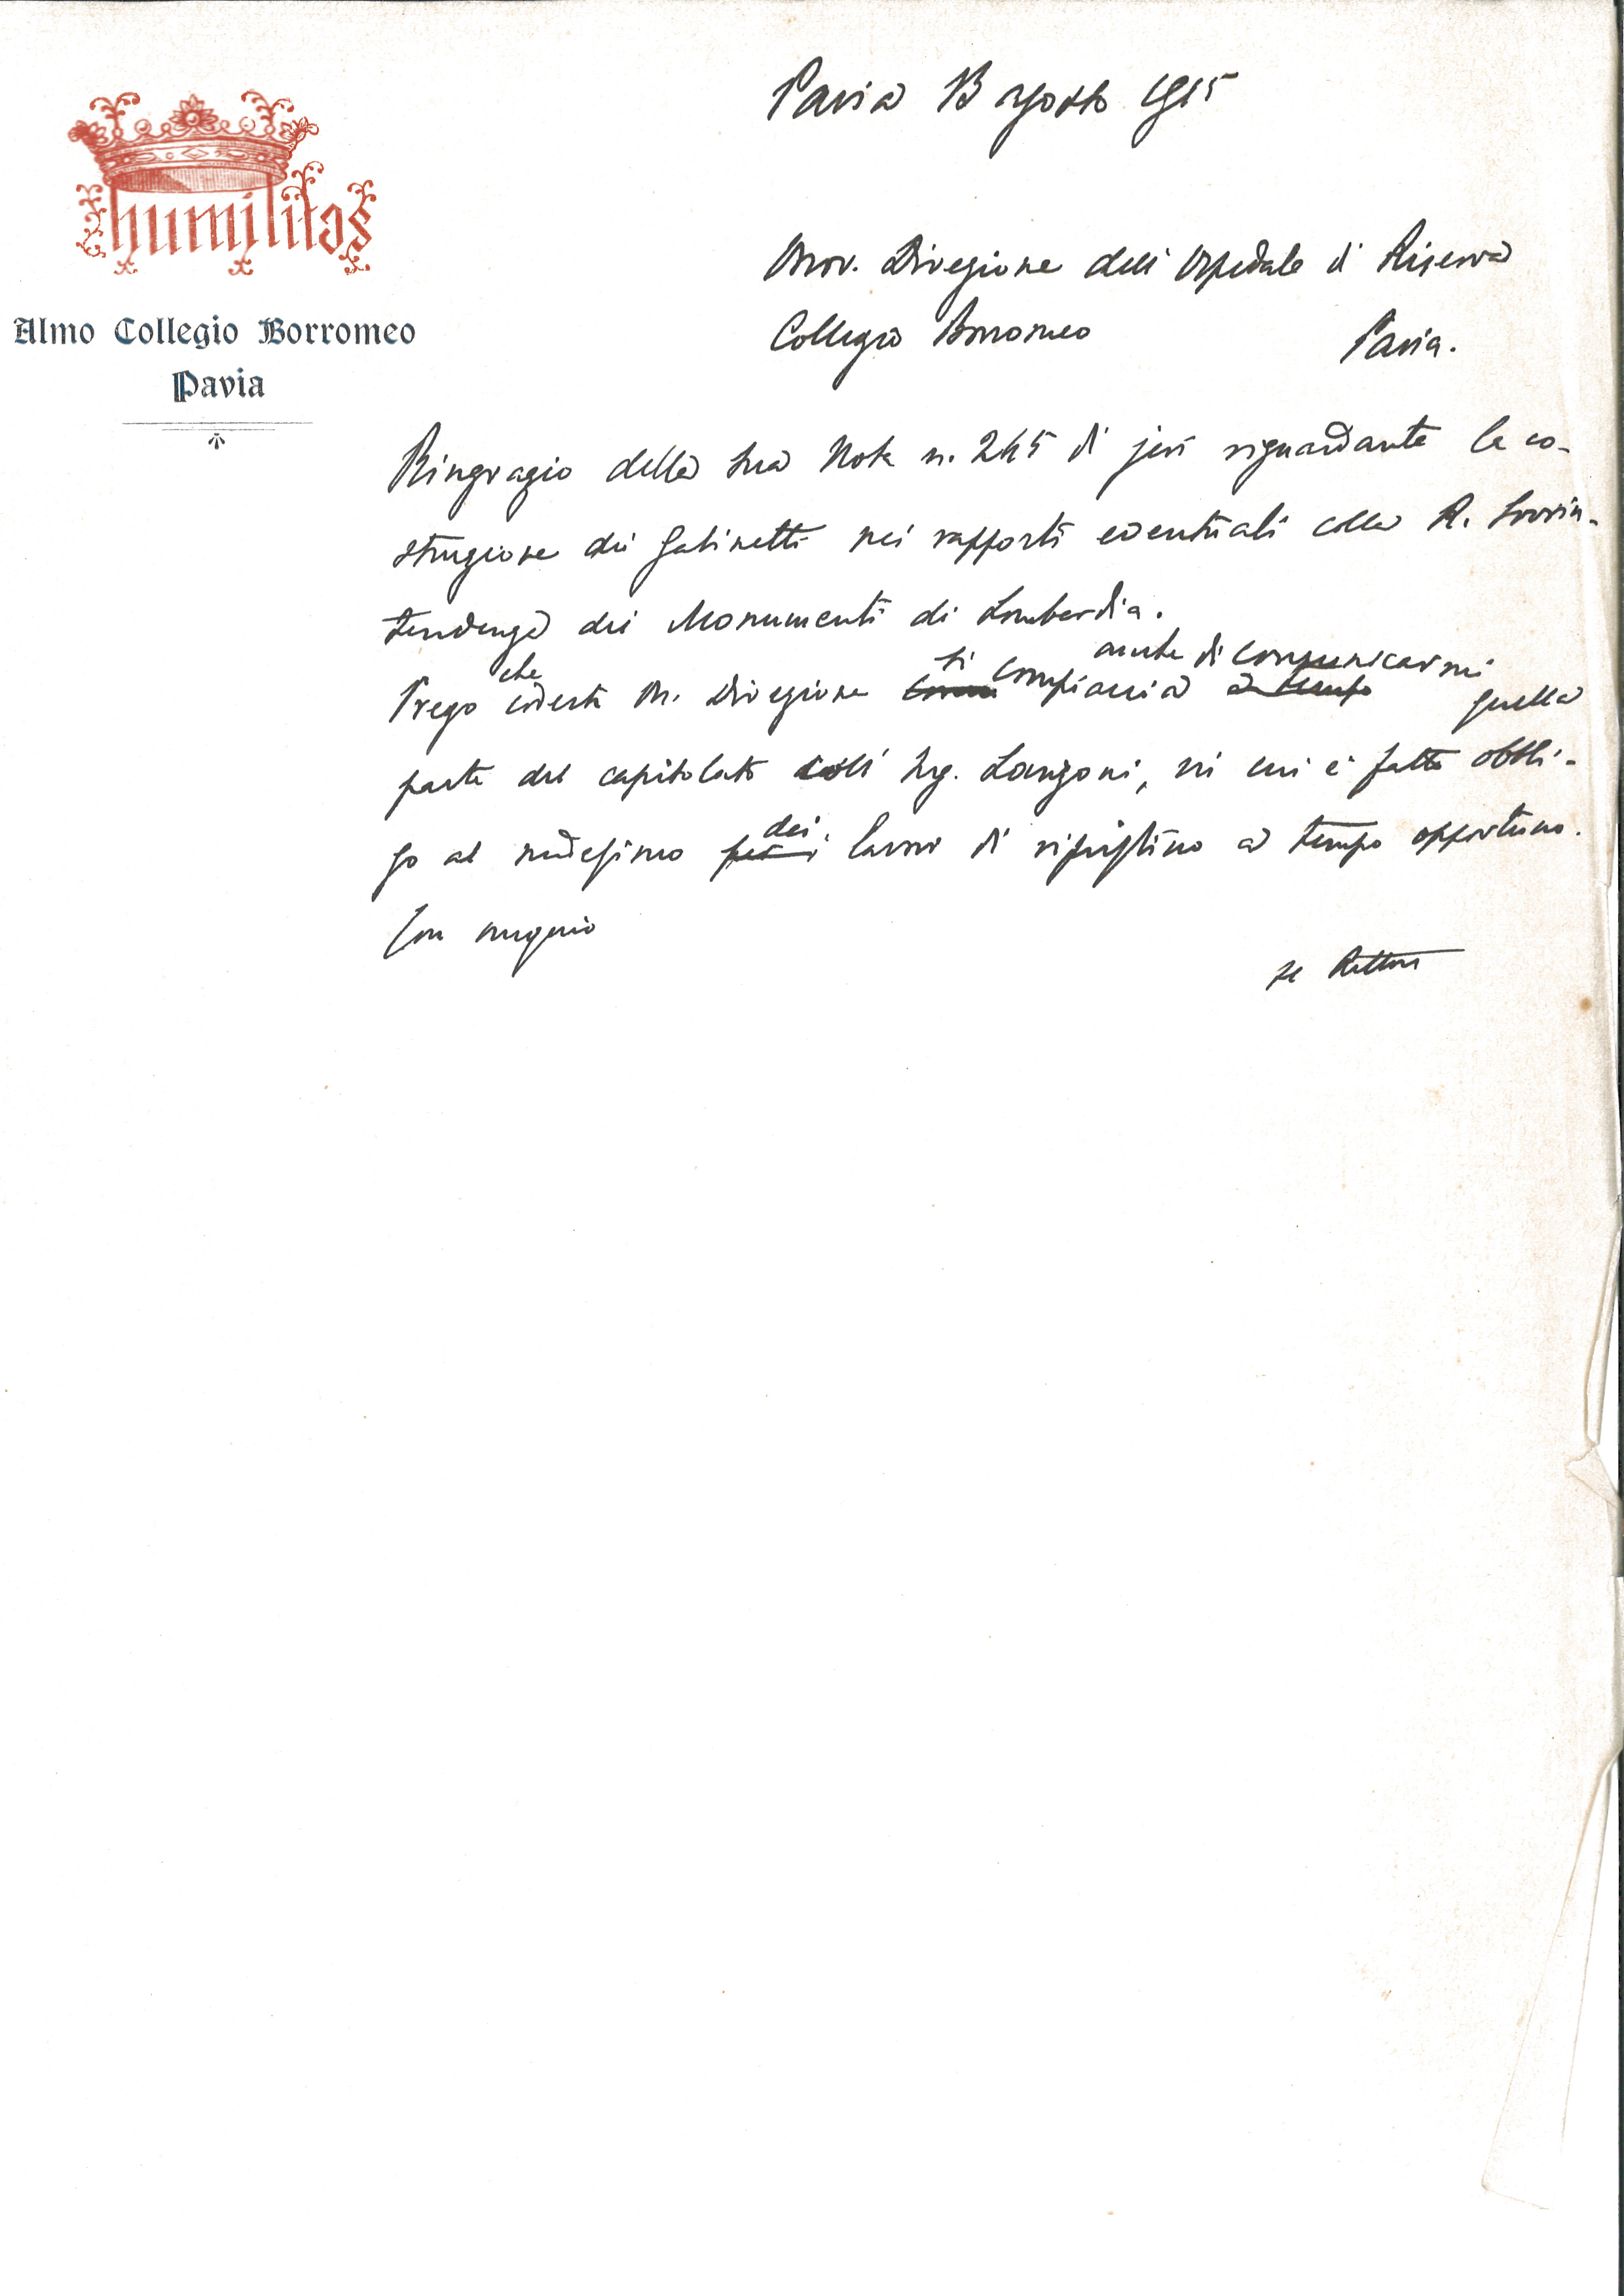 humilitas
Almo Collegio Borromeo
Pavia
Pavia 13 agosto 1915
Onor. Direzione dell'Ospedale di Riserva
Collegio Borromeo Pavia.
Ringrazio della sua Nota n. 245 di jeri riguardante la co-
struzione dei gabinetti nei rapporti eventuali colla R. Sovrin-
tendenza dei Monumenti di Lombardia.
che si anche di comunicarmi
Prego codesta On. Direzione compiaccia a tempo quella
parte del capitolato coll'Ing. Langoni, in cui è fatto obbli-
dei
go al medesimo per i lavori di ripristino a tempo opportuno.
Con ossequio
Il Rettore